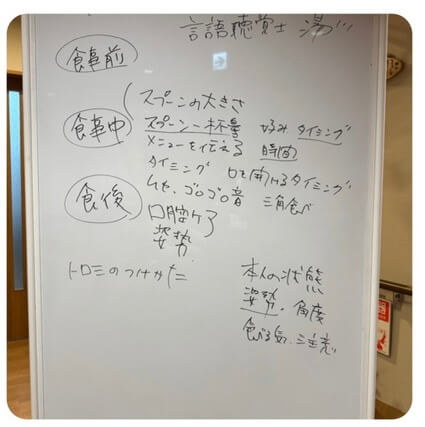 言語聴覚士 湯
食事前
スプーンの大きさ
食事中
スプーン一杯量 好み タイミング
メニューを伝える 時間
タイミング 口を開けるタイミング
食後
ムセ、ゴロゴロ音 三角食べ
口腔ケア
姿勢
トロミのつけかた
本人の状態
姿勢・角度
食べる気、注意